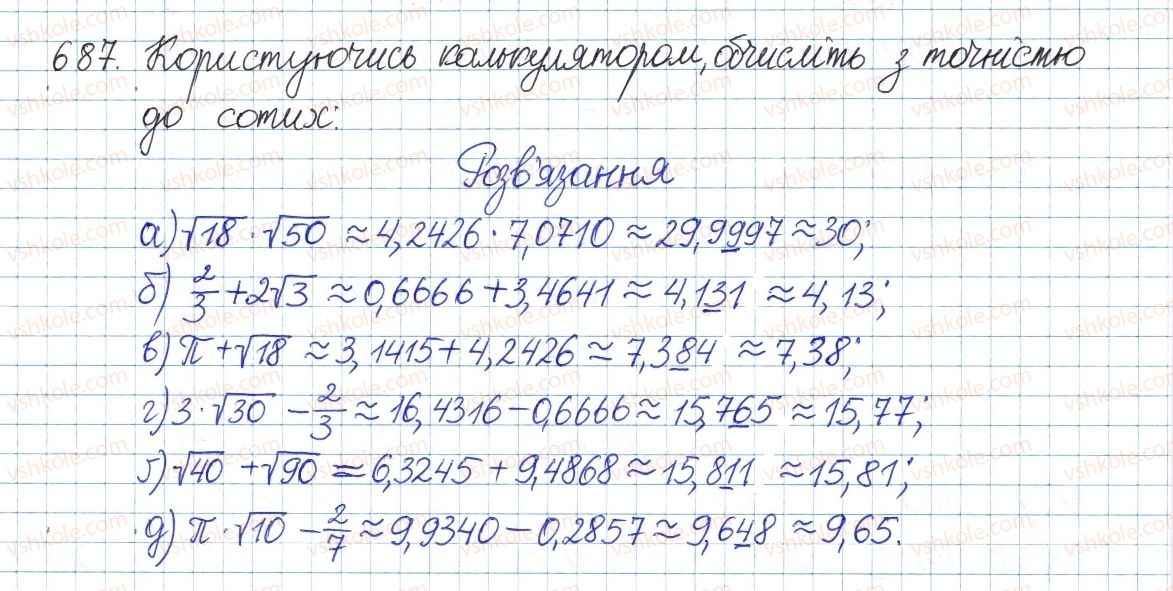 687. Користуючись калькулятором, обчисліть з точністю
до сотих:
Розв'язання
а) √18 · √50 ≈ 4,2426 · 7,0710 ≈ 29,9997 ≈ 30;
б) 2/3 + 2√3 ≈ 0,6666 + 3,4641 ≈ 4,131 ≈ 4,13;
в) π + √18 ≈ 3,1415 + 4,2426 ≈ 7,384 ≈ 7,38;
г) 3 · √30 – 2/3 ≈ 16,4316 – 0,6666 ≈ 15,765 ≈ 15,77;
ґ) √40 + √90 = 6,3245 + 9,4868 ≈ 15,811 ≈ 15,81;
д) π · √10 – 2/7 ≈ 9,9340 – 0,2857 ≈ 9,648 ≈ 9,65.